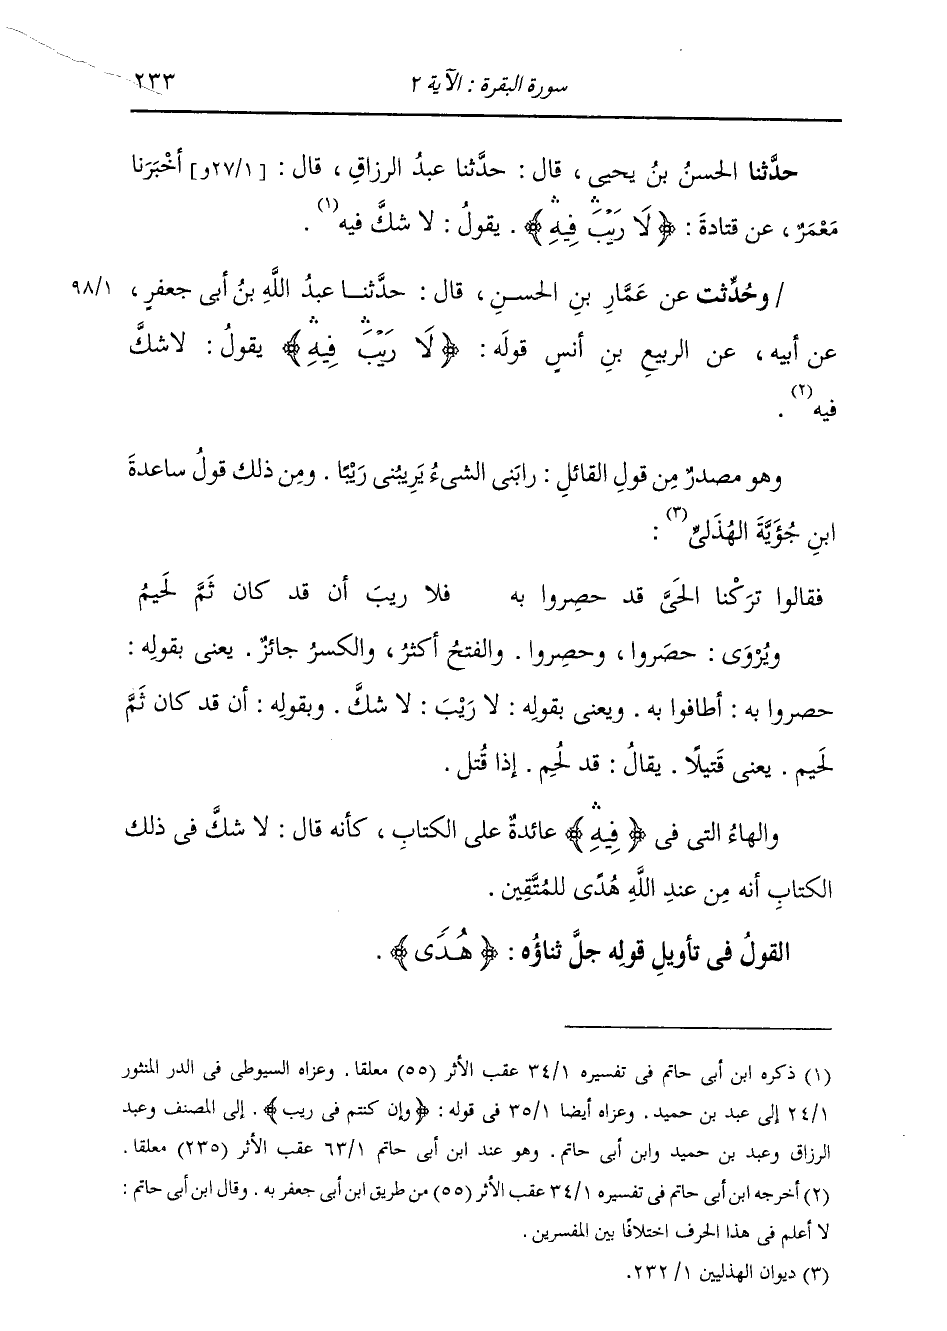 سورة البقرة : الآية ٢
٢٣٣
حدَّثنا الحسنُ بنُ يحيى ، قال : حدَّثنا عبدُ الرزاقِ ، قال : [٢٧/١و] أخْبَرَنا
مَعْمَرٌ ، عن قتادةَ : ﴿لَا رَيْبَۛ فِيهِۛ﴾ . يقولُ : لا شكَّ فيه(١) .
/ وحُدِّثت عن عَمَّارِ بنِ الحسنِ ، قال : حدَّثنا عبدُ اللَّهِ بنُ أبى جعفرٍ ، ٩٨/١
عن أبيه ، عن الربيعِ بنِ أنسٍ قولَه : ﴿لَا رَيْبَۛ فِيهِۛ﴾ يقولُ : لا شكَّ
فيه(٢) .
وهو مصدرٌ مِن قولِ القائلِ : رابَنى الشىءُ يَرِيبُنى رَيْبًا . ومِن ذلك قولُ ساعدةَ
ابنِ جُؤَيَّةَ الهُذَلىِّ(٣) :
فقالوا ترَكْنا الحَىَّ قد حصِروا به فلا ريبَ أن قد كان ثَمَّ لَحيمُ
ويُرْوَى : حصَروا ، وحصِروا . والفتحُ أكثرُ ، والكسرُ جائزٌ . يعنى بقولِه :
حصروا به : أطافوا به . ويعنى بقولِه : لا رَيْبَ : لا شكَّ . وبقولِه : أن قد كان ثَمَّ
لَحيم . يعنى قَتيلًا . يقالُ : قد لُحِم . إذا قُتل .
والهاءُ التى فى ﴿فِيهِۛ﴾ عائدةٌ على الكتابِ ، كأنه قال : لا شكَّ فى ذلك
الكتابِ أنه مِن عندِ اللَّهِ هُدًى للمُتَّقِين .
القولُ فى تأويلِ قولِه جلَّ ثناؤُه : ﴿هُدًى﴾ .
(١) ذكره ابن أبى حاتم فى تفسيره ٣٤/١ عقب الأثر (٥٥) معلقا . وعزاه السيوطى فى الدر المنثور
٢٤/١ إلى عبد بن حميد . وعزاه أيضا ٣٥/١ فى قوله : ﴿وإن كنتم فى ريب﴾ . إلى المصنف وعبد
الرزاق وعبد بن حميد وابن أبى حاتم . وهو عند ابن أبى حاتم ٦٣/١ عقب الأثر (٢٣٥) معلقا .
(٢) أخرجه ابن أبى حاتم فى تفسيره ٣٤/١ عقب الأثر (٥٥) من طريق ابن أبى جعفر به . وقال ابن أبى حاتم :
لا أعلم فى هذا الحرف اختلافًا بين المفسرين .
(٣) ديوان الهذليين ١/ ٢٣٢.